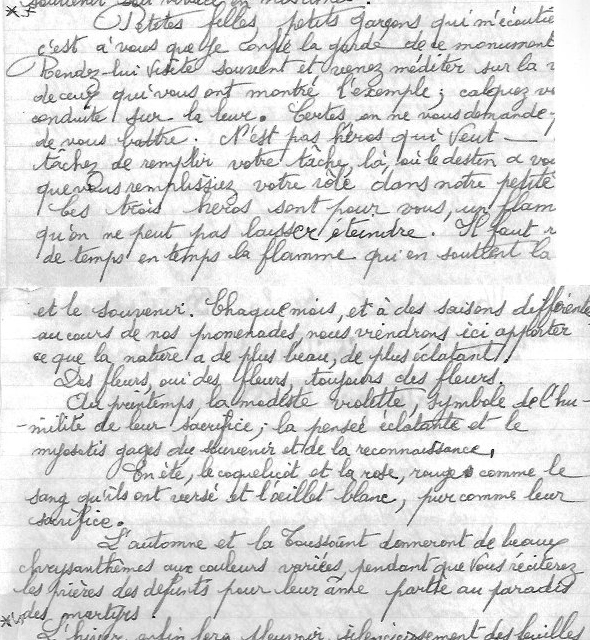 Petites filles petits garçons qui m'écoutie
c'est à vous que je confie la garde de ce monument
Rendez-lui visite souvent et venez méditer sur la v
de ceux qui vous ont montré l'exemple; calquez vo
conduite sur la leur. Certes on ne vous demande
de vous battre. N'est pas héros qui veut —
tâchez de remplir votre tâche, là, où le destin a vou
que vous remplissiez votre rôle dans notre petite
Ces trois héros sont pour vous, un flam
qu'on ne peut pas laisser éteindre. Il faut r
de temps en temps la flamme qui en soutient la
et le souvenir. Chaque mois, et à des saisons différente
au cours de nos promenades nous viendrons ici apporter
ce que la nature a de plus beau, de plus éclatant!
Des fleurs, oui des fleurs, toujours des fleurs.
Au printemps, la modeste violette, symbole de l'hu-
-milité de leur sacrifice; la pensée éclatante et le
myosotis gages du souvenir et de la reconnaissance,
En été, le coquelicot et la rose, rouges comme le
sang qu'ils ont versé et l'oeillet blanc, pur comme leur
sacrifice.
L'automne et la Toussaint donneront de beaux
chrysanthèmes aux couleurs variées, pendant que vous réciterez
les prières des défunts pour leur âme partie au paradis
des martyrs.
L'hiver enfin fera pleuvoir silencieusement des feuilles